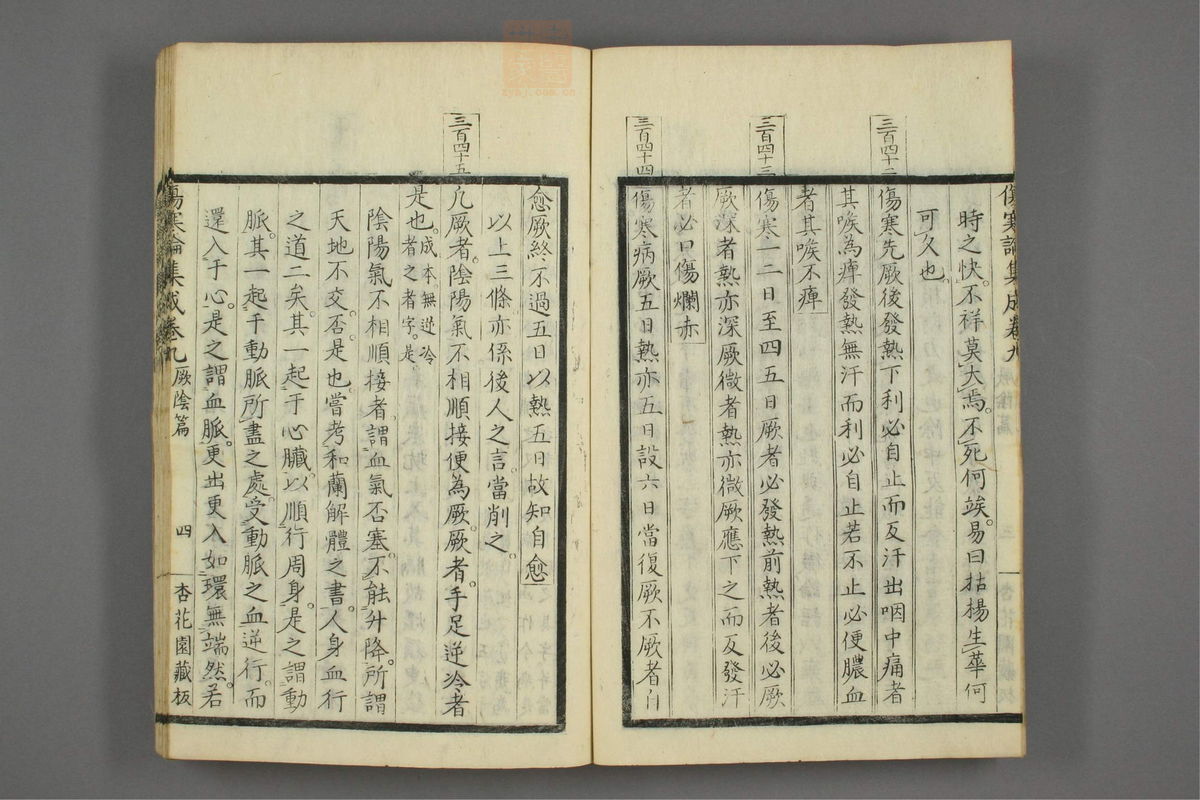 傷寒論集成卷九
時之快不祥莫大焉不死何竢易曰枯楊生華何
可久也
三百四十二
傷寒先厥後發熱下利必自止而反汗出咽中痛者
其喉為痺發熱無汗而利必自止若不止必便膿血
者其喉不痺
三百四十三
傷寒一二日至四五日厥者必發熱前熱者後必厥
厥深者熱亦深厥微者熱亦微厥應下之而反發汗
者必口傷爛赤
三百四十四
傷寒病厥五日熱亦五日設六日當復厥不厥者自
愈厥終不過五日以熱五日故知自愈
以上三條亦係後人之言當削之
三百四十五
凡厥者陰陽氣不相順接便為厥厥者手足逆冷者
是也成本無逆冷
者之者字是
陰陽氣不相順接者謂血氣否塞不能升降所謂
天地不交否是也當考和蘭解體之書人身血行
之道二矣其一起于心臟以順行周身是之謂動
脈其一起于動脈所盡之處受動脈之血逆行而
還入于心是之謂血脈更出更入如環無端然若
傷寒論集成卷九 厥陰篇 四 杏花園藏板